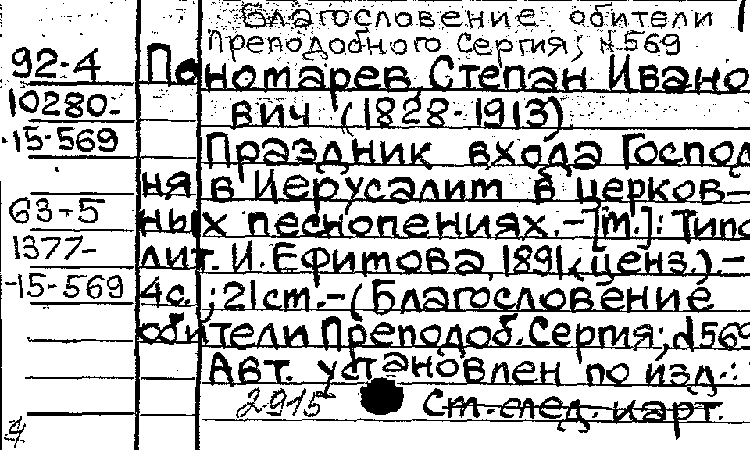 Благословение обители
Преподобного Сергия; №569
92-4 Пономарев, Степан Ивано
10280- вич (1828-1913).
15-569 Праздник входа Господ
ня в Иерусалим в церков-
63-5 ных песнопениях. - [М.]: Типо
1377- лит. И. Ефимова, 1891 (ценз.). -
-15-569 4с.; 21см. - (Благословение
обители Преподоб. Сергия; №569
Авт. установлен по изд.:
2915 См. след. карт.